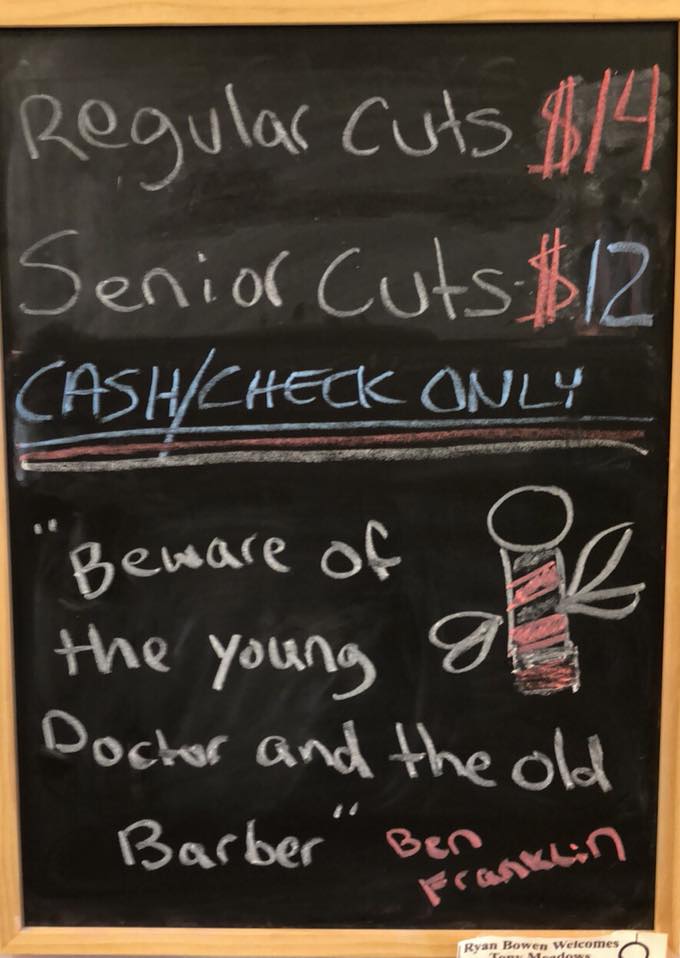 Regular Cuts $14
Senior Cuts $12
CASH/CHECK ONLY
"Beware of
the young
Doctor and the old
Barber"
Ben
Franklin
Ryan Bowen Welcomes
Tony Meadows